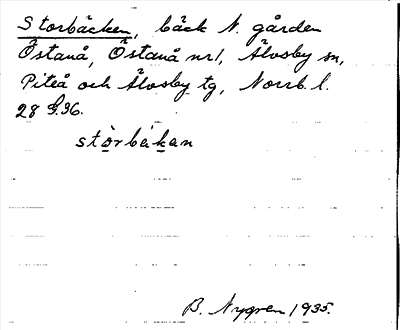 Storbäcken, bäck N. gården
Östanå, Östanå nr 1, Älvsby sn,
Piteå och Älvsby tg, Norrb. l.
28 G. 36.
stòrbäkan
B. Nygren 1935.